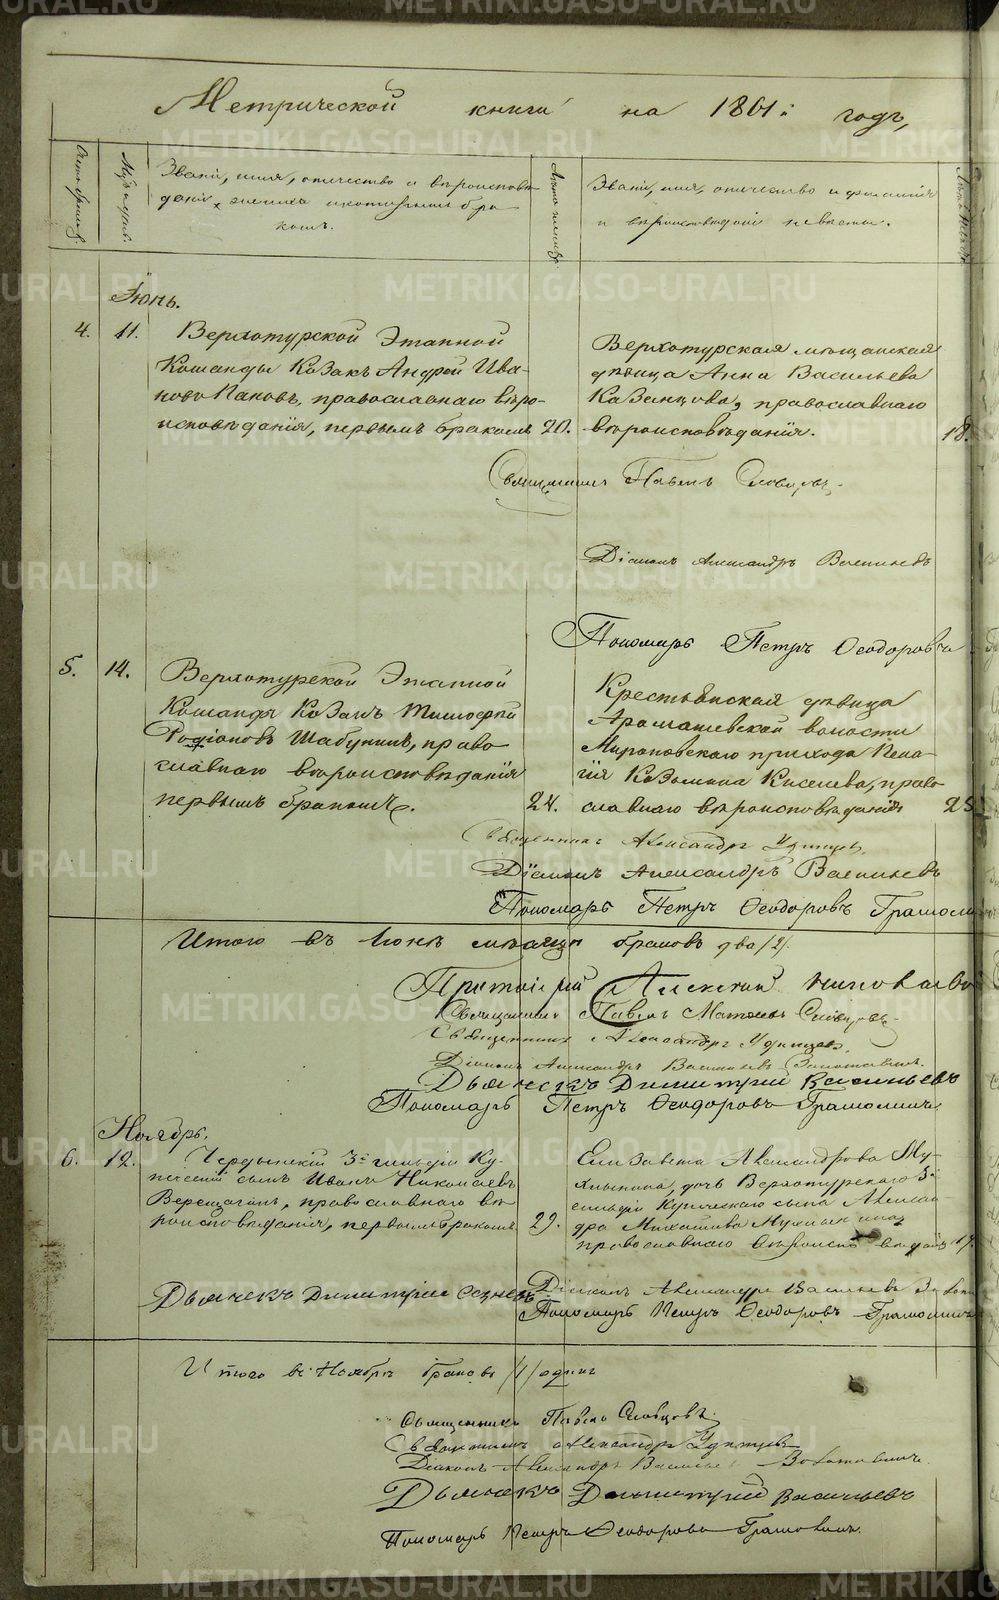 Метрической книги на 1861й годъ,
Счетъ браковъ.
Мѣсяцъ и день.
Званіе, имя, отчество и вѣроисповѣ-
даніе жениха и которымъ бра-
комъ.
Лѣта жениха
Званіе, имя, отчество и фамилія
и вѣроисповѣданіе невѣсты.
Лѣта невѣсты
Іюнь.
4. 11. Верхотурской Этапной
Команды Козакъ Андрей Ива-
новъ Пановъ, православнаго вѣро-
исповѣданія, первымъ бракомъ 20.
Верхотурская мѣщанская
дѣвица Анна Васильева
Казанцова, православнаго
вѣроисповѣданія. 18.
Священникъ Павелъ Словцовъ.
Діаконъ Александръ Васильевъ
Пономарь Петръ Ѳеодоровъ
5. 14. Верхотурской Этапной
Команды Козакъ Тимофей
Родіоновъ Шабунинъ, право-
славнаго вѣроисповѣданія
первымъ бракомъ. 24.
Крестьянская дѣвица
Арамашевской волости
Мироновскаго прихода Пела-
гія Козьмина Киселева, право-
славнаго вѣроисповѣданія 23
Священникъ Александръ Удинцев.
Діаконъ Александръ Васильевъ
Пономарь Петръ Ѳеодоровъ Грамолин
Итого въ Іюнѣ мѣсяцѣ браковъ два /2/.
Протоіерей Алексій
Священникъ Павелъ Матѳіевъ Словцовъ.
Священникъ Александръ Удинцевъ.
Діаконъ Александръ Васильевъ
Дьячекъ Димитрий Васильевъ
Пономарь Петръ Ѳеодоровъ Грамолинъ
Ноябрь.
6. 12. Чердынскій 3й гильдіи Ку-
печескій сынъ Иванъ Николаевъ
Верещагинъ, православнаго вѣ-
роисповѣданія, первымъ бракомъ 29.
Елизавета Александрова Му-
хлынина, дочь Верхотурскаго 3й
гильдіи Купеческаго сына Алексан-
дра Михайлова Мухлынина,
православнаго вѣроисповѣданія 17.
Дьячекъ Димитрій
Діаконъ Александръ Васильевъ
Пономарь Петръ Ѳеодоровъ Грамолинъ
Итого въ Ноябрѣ браковъ /1/ одинъ
Священникъ Павелъ Словцовъ.
Священникъ Александръ Удинцевъ
Діаконъ Александръ Васильевъ
Дьячекъ Димитрий Васильевъ
Пономарь Петръ Ѳеодоровъ Грамолинъ.
METRIKI.GASO-URAL.RU